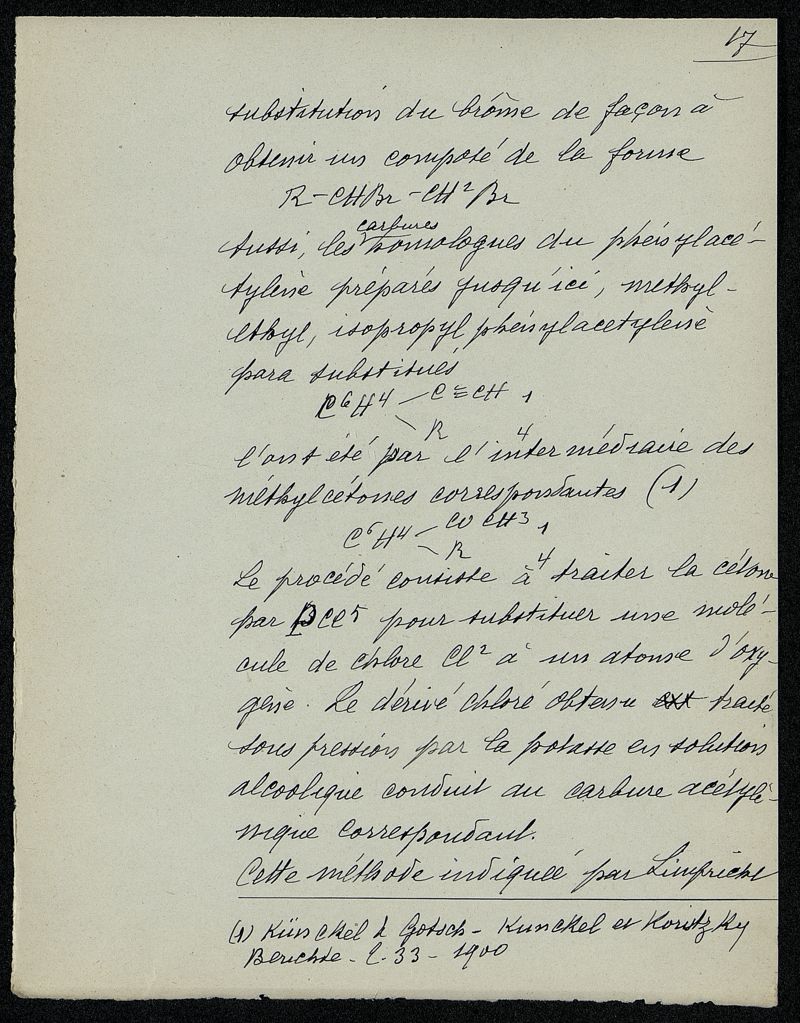 17
substitution du brôme de façon à
obtenir un composé de la forme
R-CHBr-CH²Br
Aussi, les carbures homologues du phénylacé-
tylène préparés jusqu'ici, méthyl-
éthyl, isopropyl phénylacetylène
para substitués
C⁶H⁴ - C≡CH 1
R 4
l'ont été par l'intermédiaire des
méthylcétones correspondantes (1)
C⁶H⁴ - CO CH³ 1
R 4
Le procédé consiste à traiter la cétone
par PCl⁵ pour substituer une molé-
cule de chlore Cl² à un atome d'oxy-
gène. Le dérivé chloré obtenu traité
sous pression par la potasse en solution
alcoolique conduit au carbure acétylé-
nique correspondant.
Cette méthode indiquée par Limpricht
(1) Künckel & Gotsch - Kunckel et Koritzky
Berichte - t. 33 - 1900